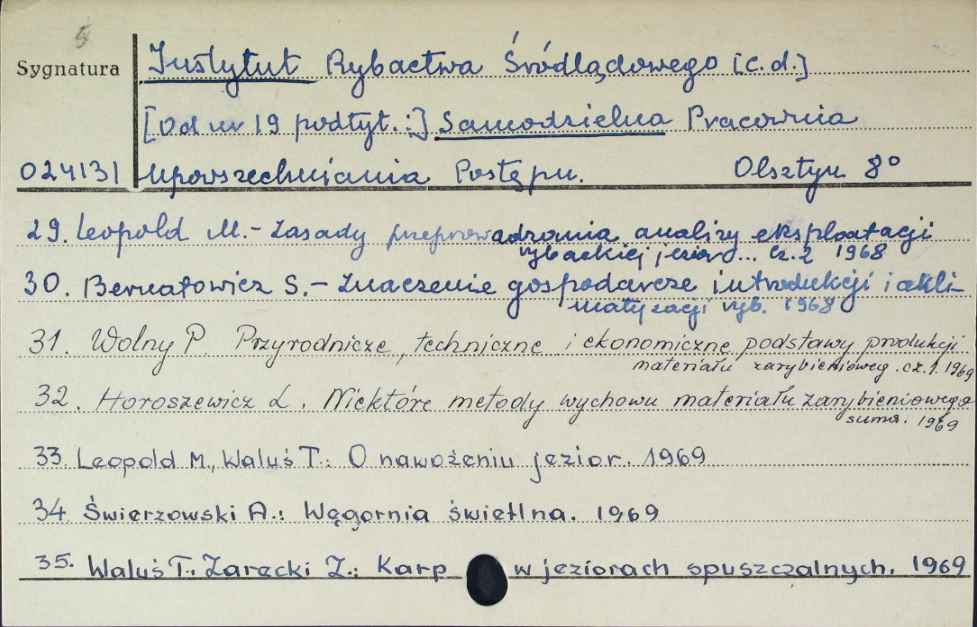 5
Sygnatura
Instytut Rybactwa Śródlądowego [c.d.]
[Od nr 19 podtyt.:] Samodzielna Pracownia
024131 Upowszechniania Postępu. Olsztyn 8°
29. Leopold M. - Zasady przeprowadzania analizy eksploatacji
rybackiej jezior... cz.2 1968
30. Bernatowicz S. - Znaczenie gospodarcze introdukcji i akli-
matyzacji ryb. 1968
31. Wolny P. Przyrodnicze, techniczne i ekonomiczne podstawy produkcji
materiału zarybienioweg. cz.1. 1969
32. Horoszewicz L. Niektóre metody wychowu materiału zarybieniowego
suma. 1969
33. Leopold M., Waluś T.: O nawożeniu jezior. 1969
34. Świerzowski A.: Węgornia świetlna. 1969
35. Waluś T., Zarecki Z.: Karp w jeziorach spuszczalnych. 1969